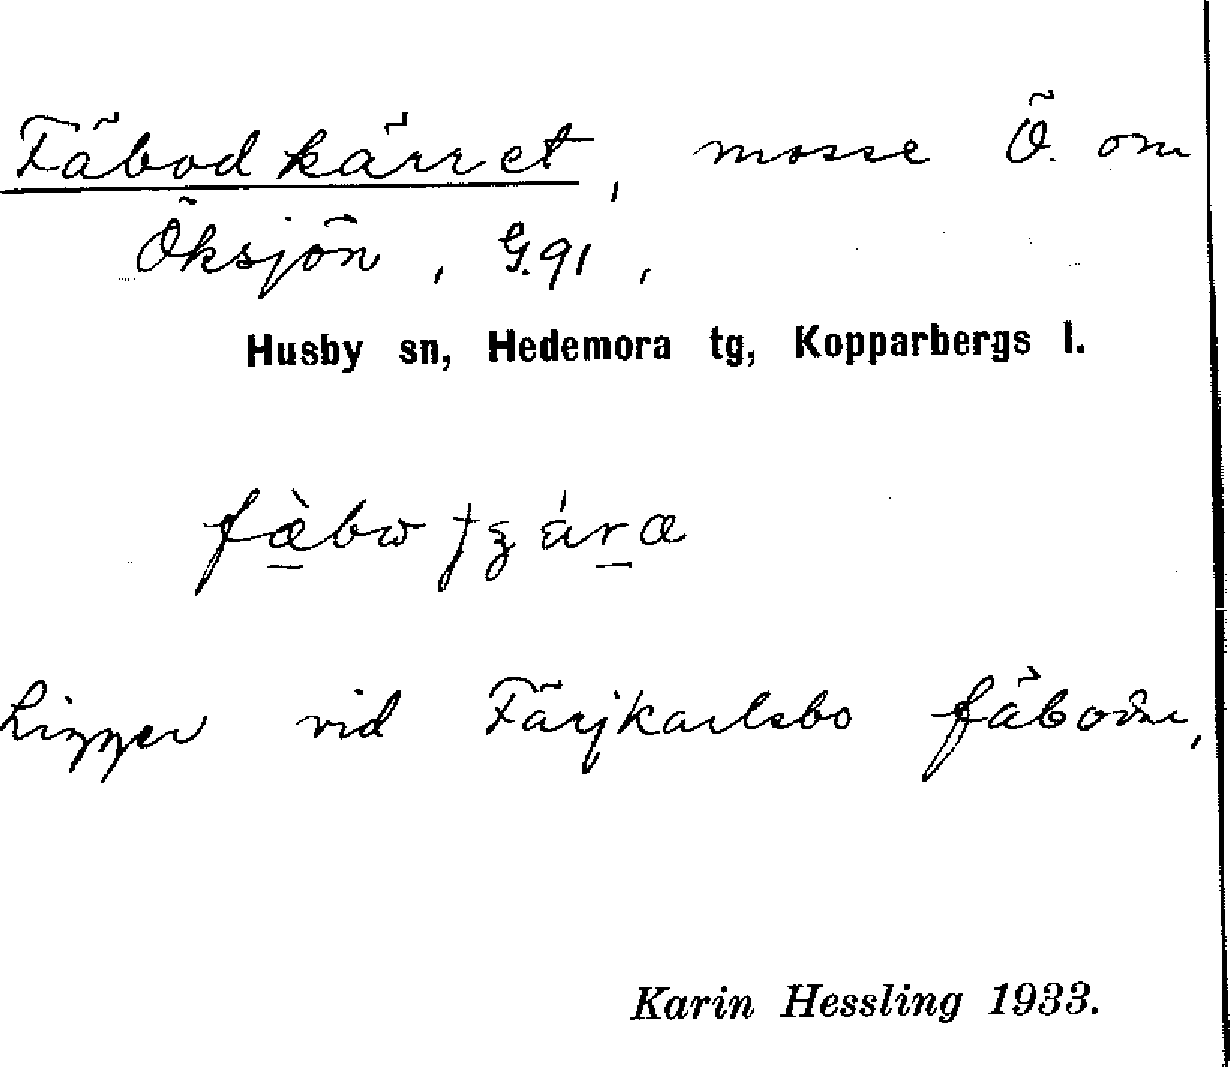 Fäbodkärret, mosse Ö. om
Öksjön, G.91,
Husby sn, Hedemora tg, Kopparbergs l.
Ligger vid Färjkarlsbo fäbodar,
Karin Hessling 1933.